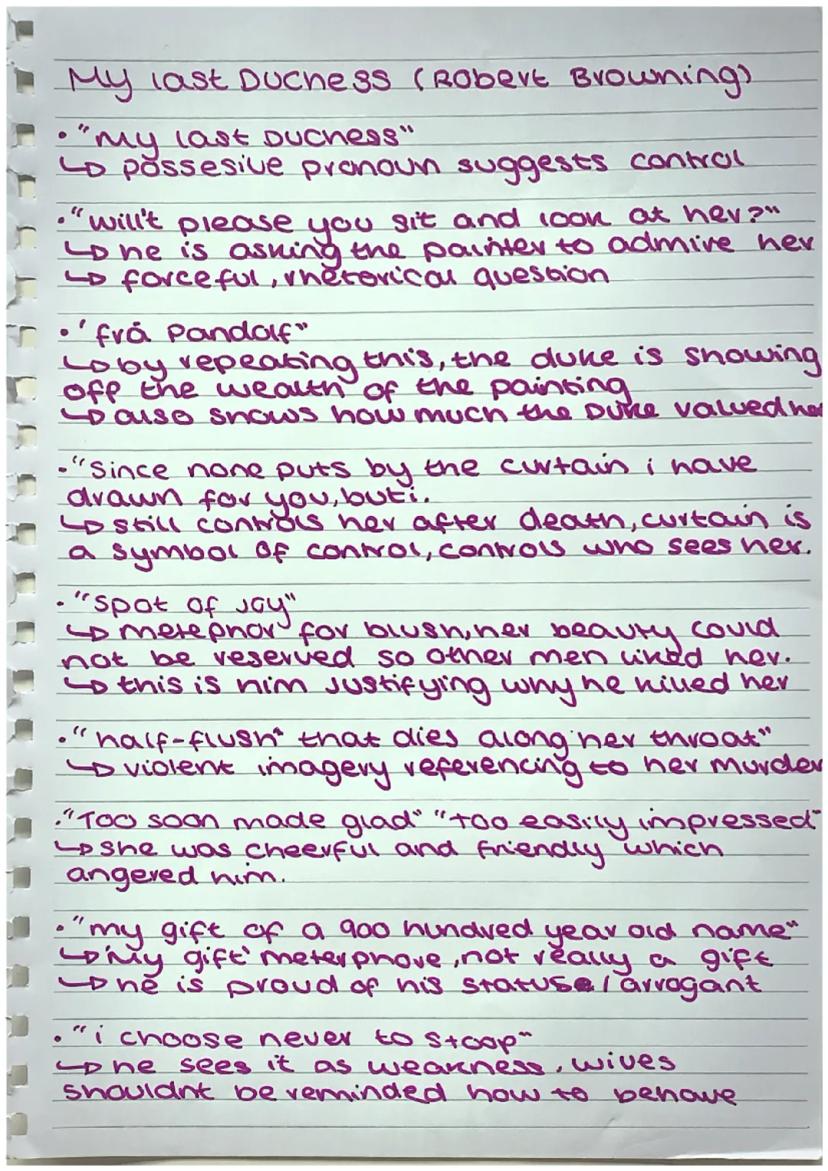 My last Duchess (Robert Browning)
• "My last Duchess"
↳ possesive pronoun suggests control
• "will't please you sit and look at her?"
↳ he is asking the painter to admire her
↳ forceful, rhetorical question
• 'frá Pandolf"
↳ by repeating this, the duke is showing
off the wealth of the painting
↳ also shows how much the Duke valued her
• "Since none puts by the curtain i have
drawn for you, but i.
↳ still controls her after death, curtain is
a symbol of control, controls who sees her.
• "Spot of joy"
↳ metephor for blush, her beauty could
not be reserved so other men liked her.
↳ this is him justifying why he killed her
• "half-flush" that dies along her throat"
↳ violent imagery referencing to her murder
• "Too soon made glad" "too easily impressed"
↳ She was cheerful and friendly which
angered him.
• "my gift of a 900 hundred year old name"
↳ 'My gift' meterphore, not really a gift
↳ he is proud of his status / arrogant
• "i choose never to stoop"
↳ he sees it as weakness, wives
shouldnt be reminded how to behave